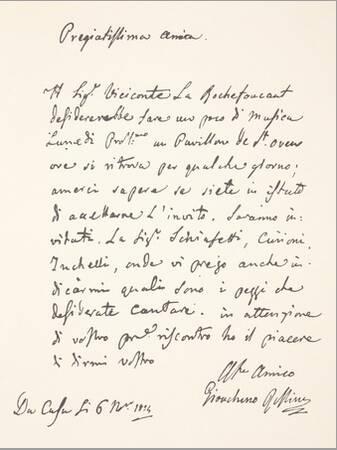 Pregiatissima Amica.
Il Sig.r Viciconte La Rochefoucaut
desidererebbe fare un poco di Musica
Lunedì Pross.mo un Pavillon de St. ouens
ove si ritrova per qualche giorno;
amerei sapere se siete in istato
di accettarne L'invito. Saranno in-
vitati. La Sig.r Schiafetti, Curioni,
Zuchelli, onde vi prego anche in-
dicarmi quali sono i pezzi che
desiderate cantare. in attenzione
di vostro pro.o riscontro ho il piacere
di dirmi vostro
Aff.e Amico
Gioachino Rossini
Da Casa Li 6 N.re 1824